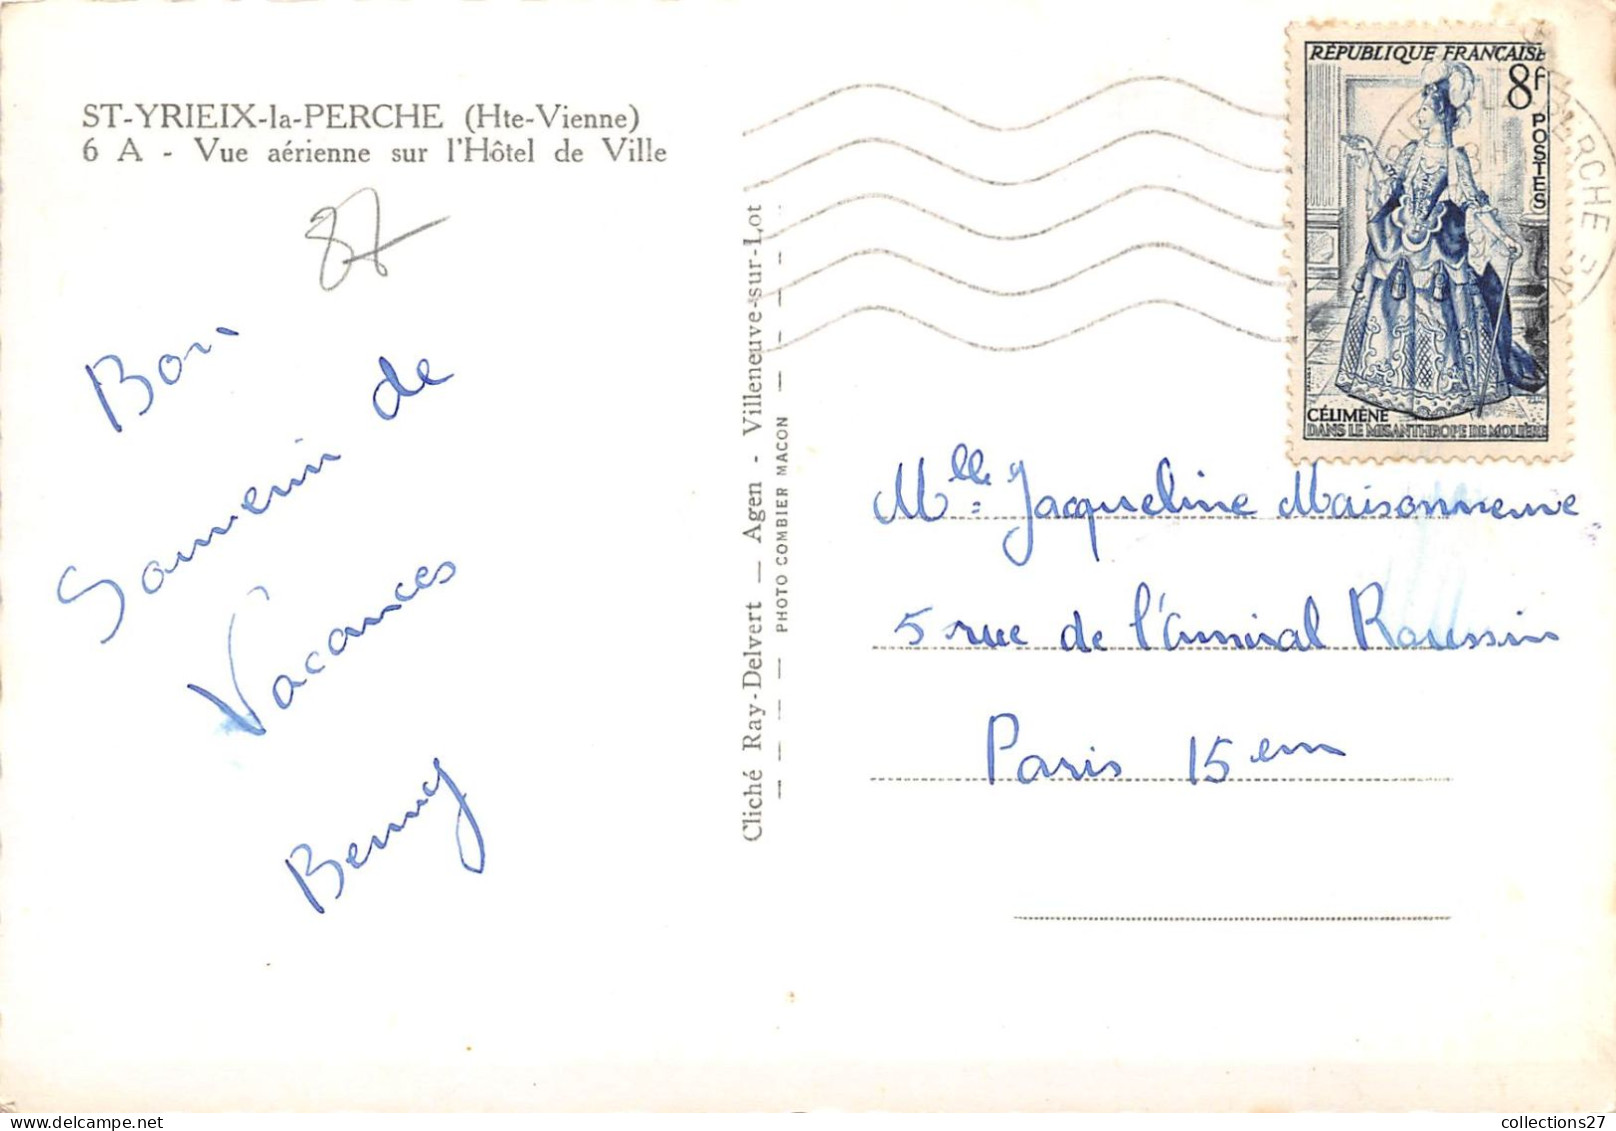 ST-YRIEIX-la-PERCHE (Hte-Vienne)
6 A - Vue aérienne sur l'Hôtel de Ville
87
Bon
Souvenir de
Vacances
Cliché Ray-Delvert — Agen - Villeneuve-sur-Lot
PHOTO COMBIER MACON
RÉPUBLIQUE FRANÇAISE
8f
POSTES
CÉLIMÈNE
DANS LE MISANTHROPE DE MOLIÈRE
PERCHE
Mlle Jacqueline Maisonneuve
5 rue de l'Amiral Roussin
Paris 15 em
collections27